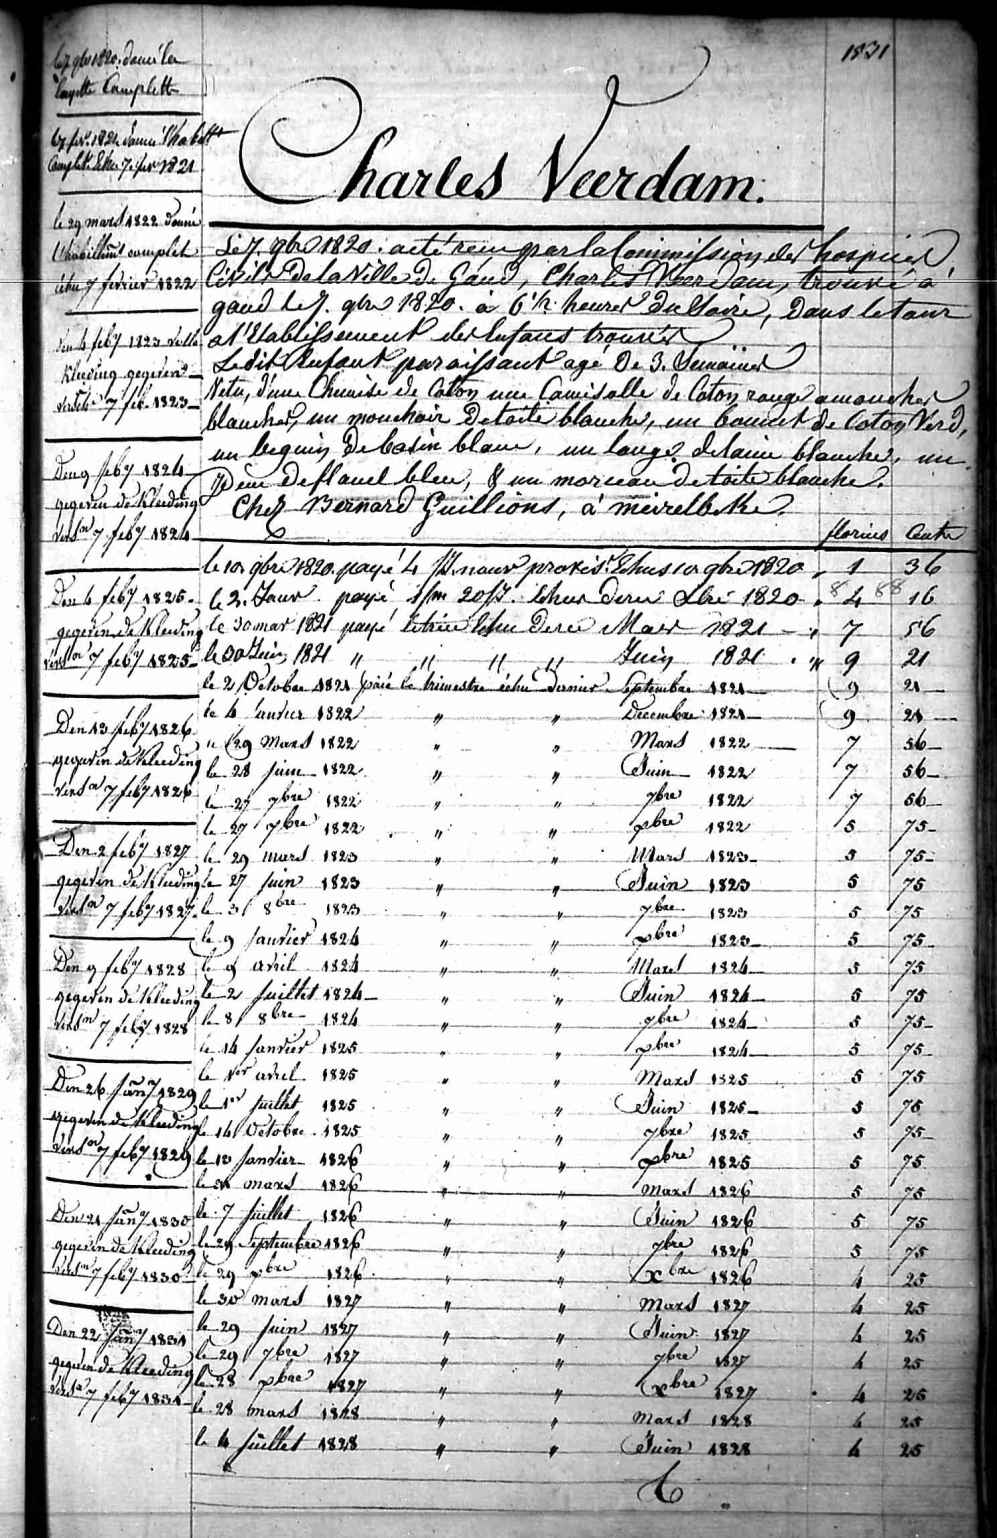 1831
le 7 9bre 1820. donné la
layette Complette
le 7 fevr. 1821 donné l'habillt
Complet Echu 7 fevr 1821
le 29 mars 1822 donné
l'habillemt complet
échu 7 février 1822
den 4 feby 1823 volle
Kleeding gegeven
verschn 7 feb. 1823
Den 9 feby 1824
gegeven de Kleeding
versn 7 feby 1824
Den 6 feby 1825.
gegeven de Kleeding
versn 7 feby 1825
Den 13 feby 1826
gegeven de Kleeding
versn 7 feby 1826
Den 2 feby 1827
gegeven de Kleeding
versn 7 feby 1827.
Den 9 feby 1828
gegeven de Kleeding
versn 7 feby 1828
Den 26 Jany 1829
gegeven de Kleeding
versn 7 feby 1829
Den 21 Jany 1830
gegeven de Kleeding
versn 7 feby 1830
Den 22 Jany 1831
gegeven de Kleeding
versn 7 feby 1831
Charles Veerdam.
Le 7. 9bre 1820. a été reçu par la Commission des hospices
Civils De la Ville de Gand, Charles Veerdam, trouvé à
gand le 7. 9bre 1820. à 6 ½ heures du Soire, Dans le tour
a l'Etablissement des Enfans trouvés
Ledit Enfant paroissant agé De 3. Semaines
Vetu, d'une Chemise de Coton une Camisolle de Coton rouge a mouches
blanches, un mouchoir De toile blanche, un bonnet de Coton Verd,
un beguin De basin blanc, un lange de laine blanche, un
Dem de flanel bleu, & un morceau de toile blanche.
Chez Bernard Guillions, à meirelbeke
florins Cents
le 10 9bre 1820. payé 4 Js. nour provis. Echus 10 9bre 1820 „ 1 36
le 2. Janv. payé 1 m 20 J. Echus derer Xbre 1820 „ 8 4 88 16
le 30 mar 1821 payé le trie Echu derer Mars 1821 „ 7 56
le 30 Juin 1821 „ „ „ „ Juin 1821 „ 9 21
le 2 Octobre 1821 païé le trimestre échu dernier Septembre 1821 9 21
le 4 Janvier 1822 „ „ Decembre 1821 9 21
le 29 Mars 1822 „ „ Mars 1822 7 56
le 28 Juin 1822 „ „ Juin 1822 7 56
le 27 7bre 1822 „ „ 7bre 1822 7 56
le 27 xbre 1822 „ „ xbre 1822 5 75
le 29 mars 1823 „ „ Mars 1823 5 75
le 27 Juin 1823 „ „ Juin 1823 5 75
le 3 8bre 1823 „ „ 7bre 1823 5 75
le 9 Janvier 1824 „ „ xbre 1823 5 75
le 9 avril 1824 „ „ Mars 1824 5 75
le 2 Juillet 1824 „ „ Juin 1824 5 75
le 8 8bre 1824 „ „ 7bre 1824 5 75
le 14 Janvier 1825 „ „ xbre 1824 5 75
le 1er avril 1825 „ „ Mars 1825 5 75
le 1er Juillet 1825 „ „ Juin 1825 5 75
le 14 Octobre 1825 „ „ 7bre 1825 5 75
le 13 Janvier 1826 „ „ xbre 1825 5 75
le 31 mars 1826 „ „ mars 1826 5 75
le 7 Juillet 1826 „ „ Juin 1826 5 75
le 29 Septembre 1826 „ „ 7bre 1826 5 75
le 29 xbre 1826 „ „ Xbre 1826 4 25
le 30 mars 1827 „ „ Mars 1827 4 25
le 29 Juin 1827 „ „ Juin 1827 4 25
le 29 7bre 1827 „ „ 7bre 1827 4 25
le 28 xbre 1827 „ „ Xbre 1827 4 25
le 28 mars 1828 „ „ Mars 1828 4 25
le 4 Juillet 1828 „ „ Juin 1828 4 25